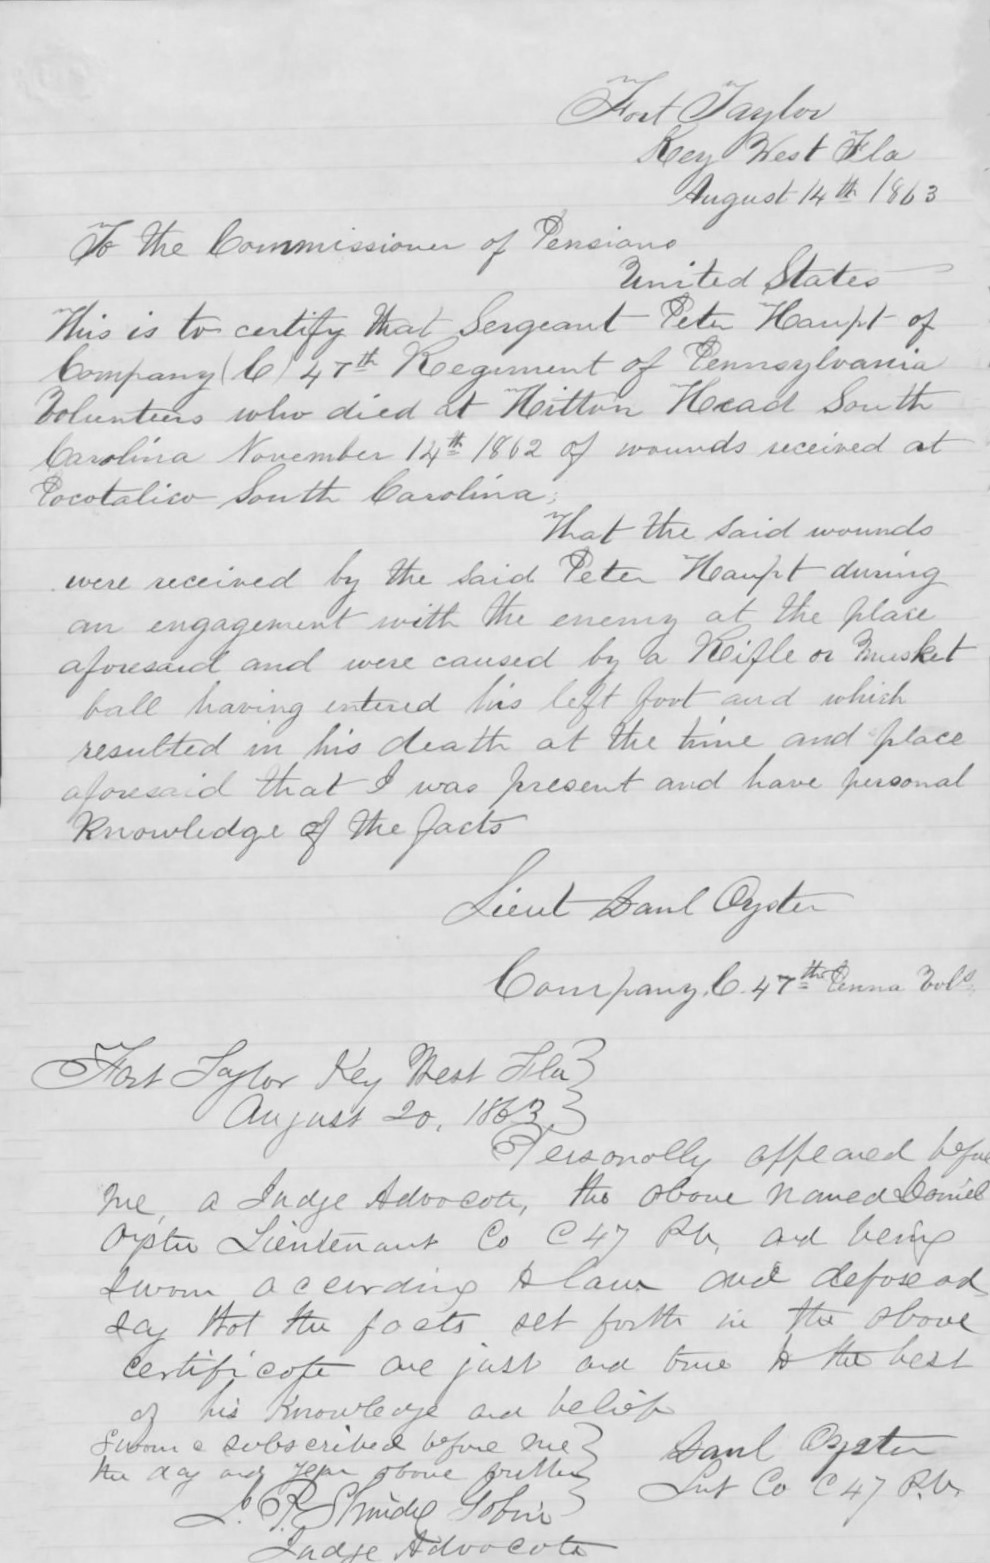 Fort Taylor
Key West Fla
August 14th 1863
To the Commissioner of Pensions
United States
This is to certify that Sergeant Peter Haupt of
Company (C) 47th Regiment of Pennsylvania
Volunteers who died at Hilton Head South
Carolina November 14th 1862 of wounds received at
Pocotalico South Carolina;
That the said wounds
were received by the said Peter Haupt during
an engagement with the enemy at the place
aforesaid and were caused by a Rifle or Musket
ball having entered his left foot and which
resulted in his death at the time and place
aforesaid that I was present and have personal
Knowledge of the facts
Lieut Danl Oyster
Company C. 47th Penna Vols
Fort Taylor Key West Fla
August 20, 1863
Personally appeared before
me, a Judge Advocate, the above named Daniel
Oyster Lieutenant Co C 47 P.V, and being
sworn according to law and depose and
say that the facts set forth in the above
certificate are just and true to the best
of his knowledge and belief
Sworn & subscribed before me
the day and year above written
Danl Oyster
Lut Co C 47 P.V.
J. P. Shindel Gobin
Judge Advocate